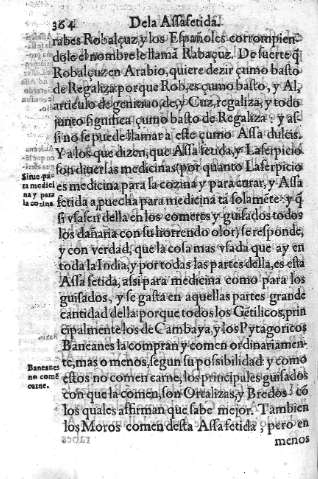 364 De la Assafetida.
rabes Robalçuz, y los Españoles corrompien
dole el nombre le llamã Rabaçuz. De suerte q̃
Robalçuz en Arabio, quiere dezir çumo basto
de Regaliza porque Rob, es çumo basto, y Al,
articulo de genitiuo, de, y Cuz, regaliza, y todo
junto significa çumo basto de Regaliza: y as-
si no se puede llamar a este çumo Assa dulcis.
Y a los que dizen, que Assa fetida, y Laserpicio
son diuersas medicinas (por quanto Laserpicio
es medicina para la cozina y para curar, y Assa
fetida apuecha para medicina tã solamẽte: y q̃
si vsassen della en los comeres y guisados todos
los dañaria con su horrendo olor) se responde,
y con verdad, que la cosa mas vsada que ay en
toda la India, y por todas las partes della, es esta
Assa fetida, assi para medicina como para los
guisados, y se gasta en aquellas partes grande
cantidad della: porque todos los Gẽtilicos, prin
cipalmente los de Cambaya, y los Pytagoricos
Baneanes la compran y comen ordinariamen-
te, mas o menos, segun su possibilidad y como
estos no comen carne, los principales guisados
con que la comen, son Ortalizas, y Bredos cõ
los quales affirman que sabe mejor. Tambien
los Moros comen desta Assa fetida, pero en
menos
Sirue pa-
ra medici
na y para
la cozina.
Baneanes
no comẽ
carne.